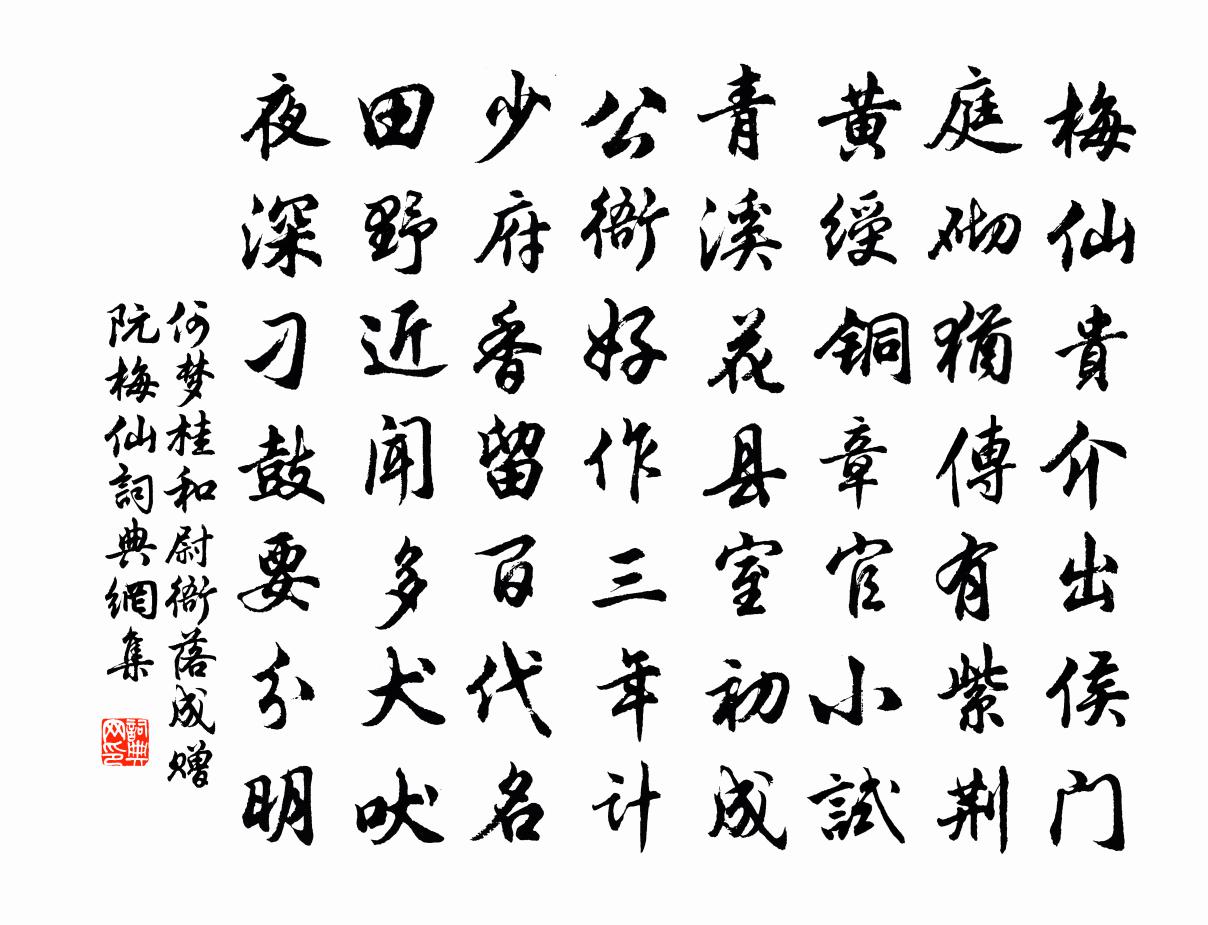 梅仙貴介出侯门
庭砌猶傳有紫荆
黄綬銅章官小試
青溪花县室初成
公衙好作三年计
少府香留百代名
田野近闻多犬吠
夜深刁鼓要分明
何梦桂和尉衙落成赠
阮梅仙詞典網集
詞典
网印